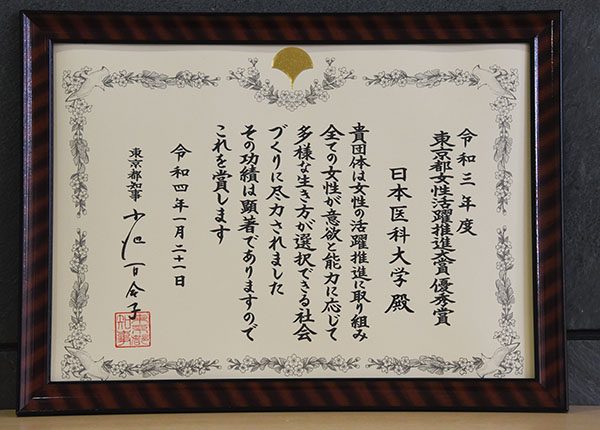 令和三年度
東京都女性活躍推進大賞優秀賞
日本医科大学 殿
貴団体は女性の活躍推進に取り組み
全ての女性が意欲と能力に応じて
多様な生き方が選択できる社会
づくりに尽力されました
その功績は顕著でありますので
これを賞します
令和四年一月二十一日
東京都知事 小池百合子
東京都知事